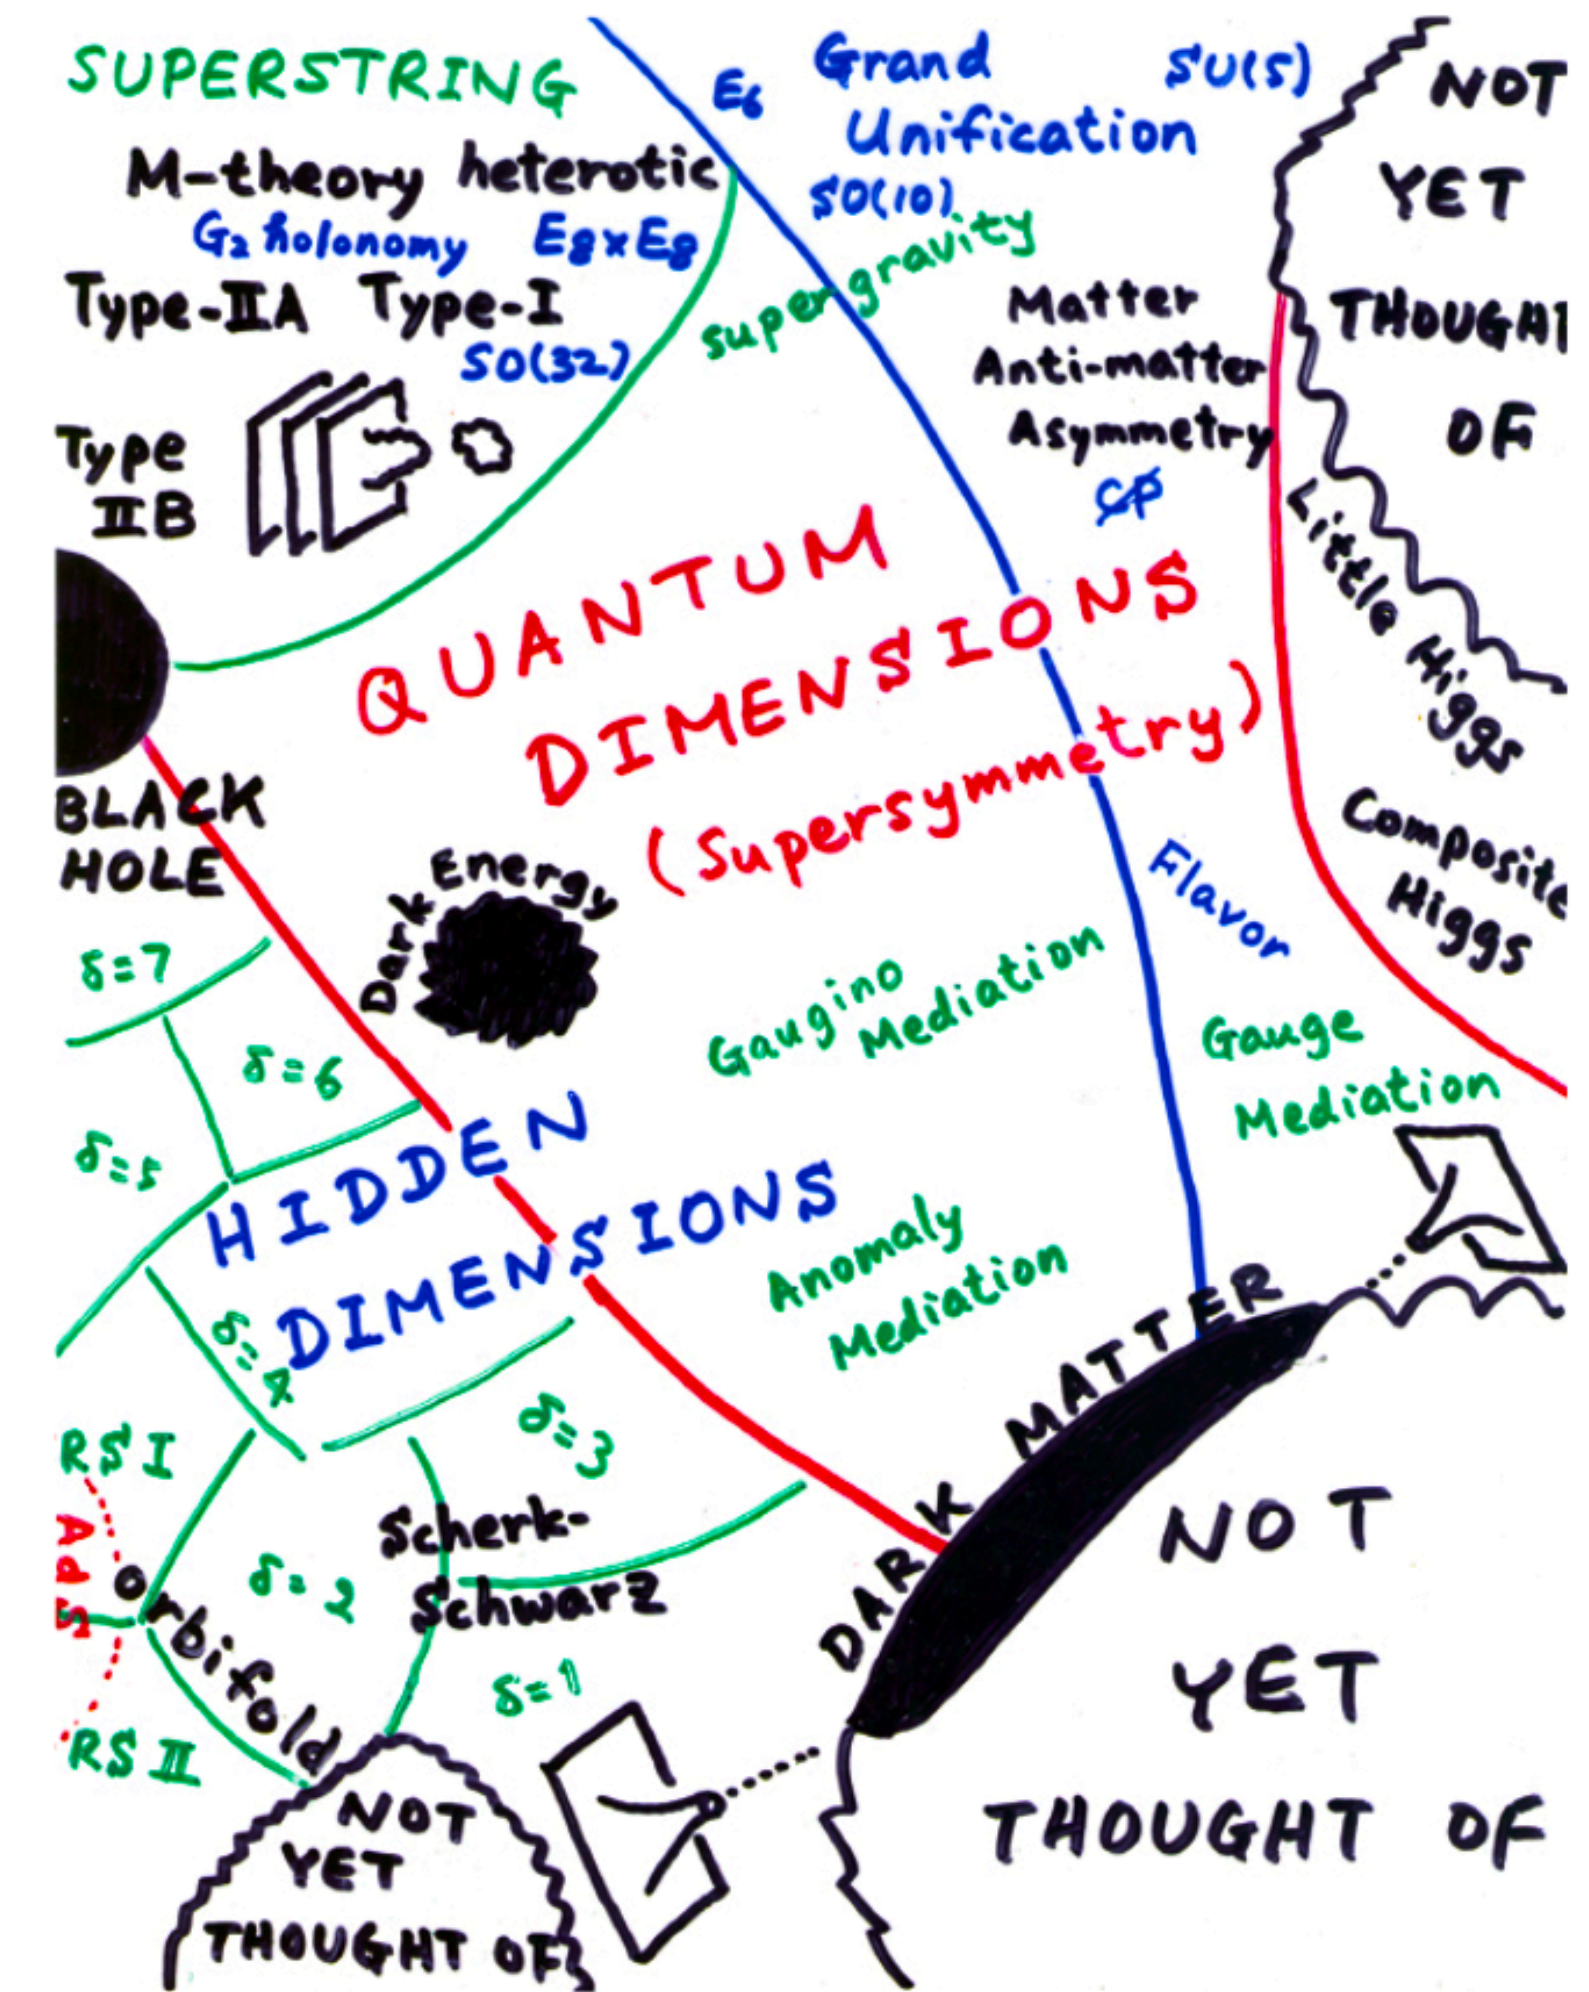 SUPERSTRING
M-theory heterotic
G₂ holonomy E₈×E₈
Type-IIA Type-I
SO(32)
Type
IIB
E₆
Grand
Unification
SU(5)
SO(10)
supergravity
Matter
Anti-matter
Asymmetry
CP
NOT
YET
THOUGHT
OF
Little Higgs
Composite
Higgs
QUANTUM
DIMENSIONS
(Supersymmetry)
BLACK
HOLE
Dark Energy
Flavor
Gaugino
Mediation
Gauge
Mediation
Anomaly
Mediation
δ=7
δ=6
δ=5
HIDDEN
DIMENSIONS
δ=4
δ=3
RS I
AdS
RS II
Orbifold
δ=2
Scherk-
Schwarz
δ=1
DARK MATTER
NOT
YET
THOUGHT OF
NOT
YET
THOUGHT OF